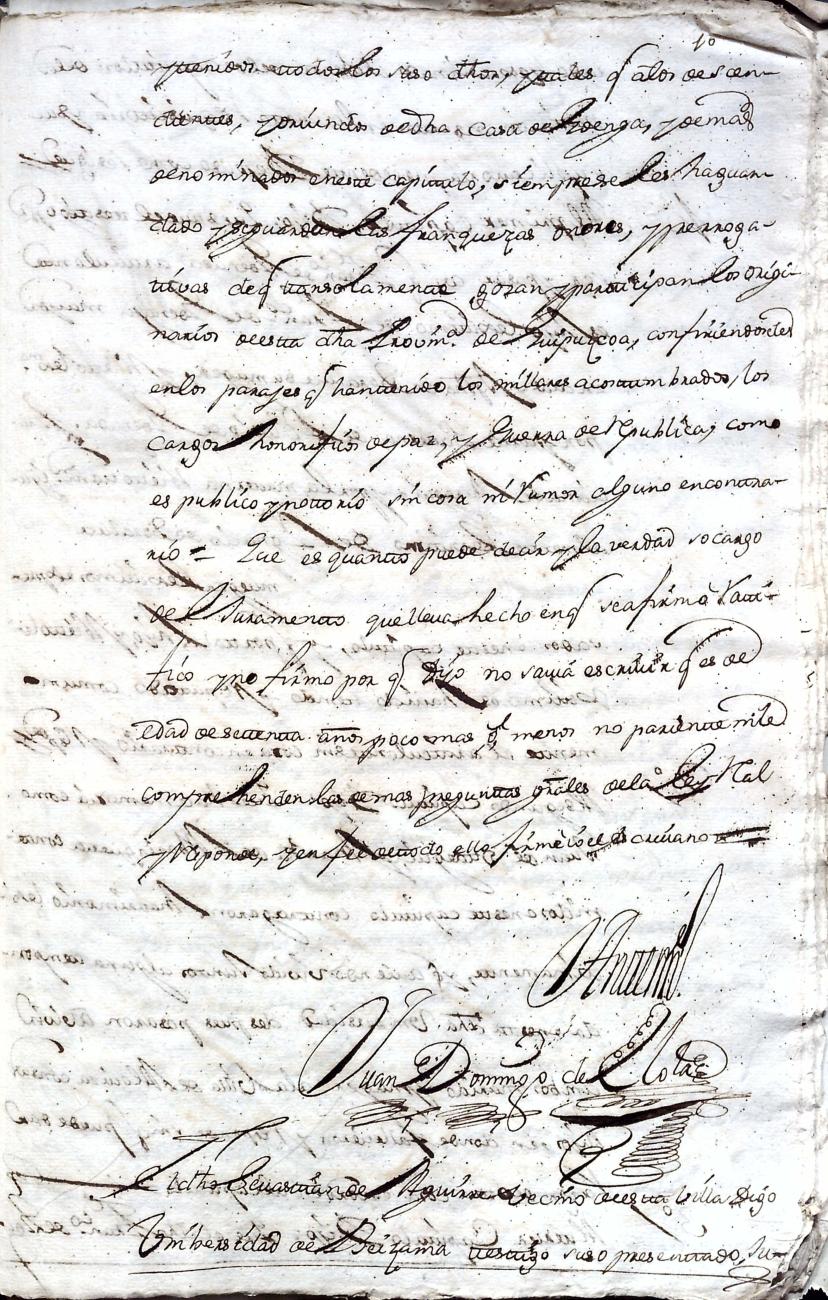 10
y tenidos todos los suso dhos, y tales q̃ a los descen-
dientes, y oriundos de dha Casa de, y demas
denominados en este capitulo, siempre se les ha guar-
dado y se guardan las franquezas onores, y prerroga-
tivas de q̃ tan solamente gozan y partizipan los origi-
narios de esta dha Provinª de Guipuzcoa, confiriendoseles
en los parajes q̃ han tenido los millares acostumbrados, los
cargos honorifios de paz, y Guerra de Republica, como
es publico y nottorio sin cosa ni Rumor alguno en contra-
rio = Que es quanto puede decir y la verdad so cargo
de el Juramento que lleva hecho en q̃ se afirmo Ratti-
fico y no firmo por q̃ Dijo no savia escrivir q̃ es de
edad de settenta años poco mas q̃ menos no pariente ni le
comprehenden las demas preguntas grãles de la Ley Real
y Rsponde, y en fee de todo ello firme io el escrivano
Antemi
Juan Domingo de
El dho Sevastian de Aguirre Vecino de esta Villa Digo
Vnibersidad de Beizama testigo suso presentado, Ju-